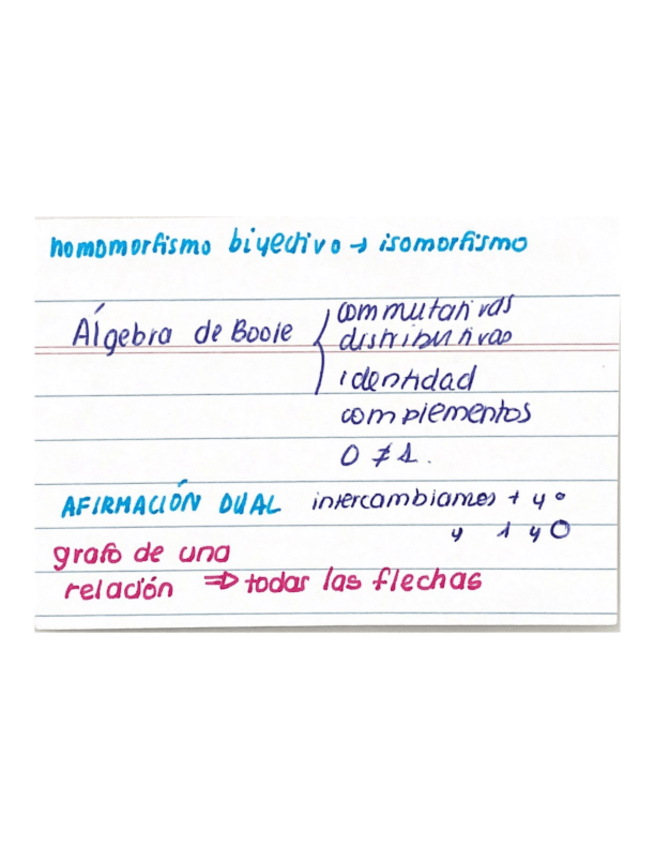 homomorfismo biyectivo → isomorfismo
Álgebra de Boole { commutativas
distributivas
identidad
complementos
0 ≠ 1.
AFIRMACIÓN DUAL intercambiamos + y °
y 1 y 0
grafo de una
relación ⇒ todas las flechas